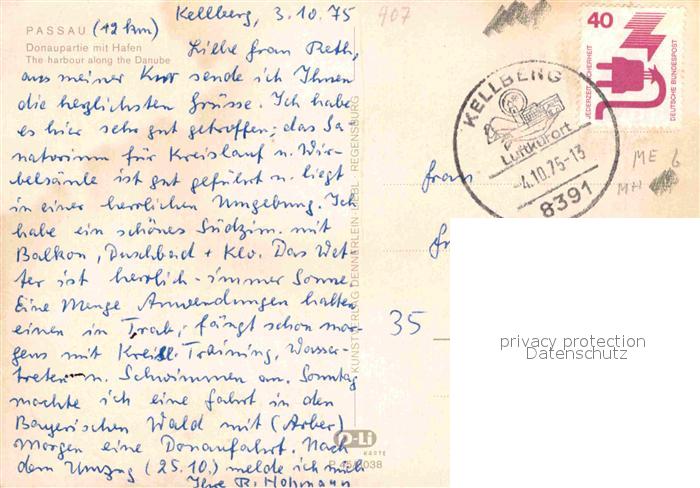 Kellberg, 3.10.75
PASSAU (12 km)
Donaupartie mit Hafen
The harbour along the Danube
Liebe Frau Reth,
aus meiner Kur sende ich Ihnen
die herzlichsten Grüsse. Ich habe
es hier sehr gut getroffen; das Sa-
natorium für Kreislauf u. Wir-
belsäule ist gut geführt u. liegt
in einer herrlichen Umgebung. Ich
habe ein schönes Südzim. mit
Balkon, Duschbad + Klo. Das Wet-
ter ist herrlich - immer Sonne.
Eine Menge Anwendungen halten
einen in Trab, fängt schon mor-
gens mit Kreisl. Training, Wasser-
treten u. Schwimmen an. Sonntag
machte ich eine Fahrt in den
Bayerischen Wald mit (Arber)
Morgen eine Donaufahrt. Nach
dem Umzug (25.10.) melde ich mich
Ihre R. Hohmann
KUNSTVERLAG DENNERLEIN REGENSBURG
O-Li
KARTE
407
KELLBERG
Luftkurort
-4.10.75-13
8391
40
JEDERZEIT SICHERHEIT
DEUTSCHE BUNDESPOST
ME 6
MH
Frau
35
privacy protection
Datenschutz